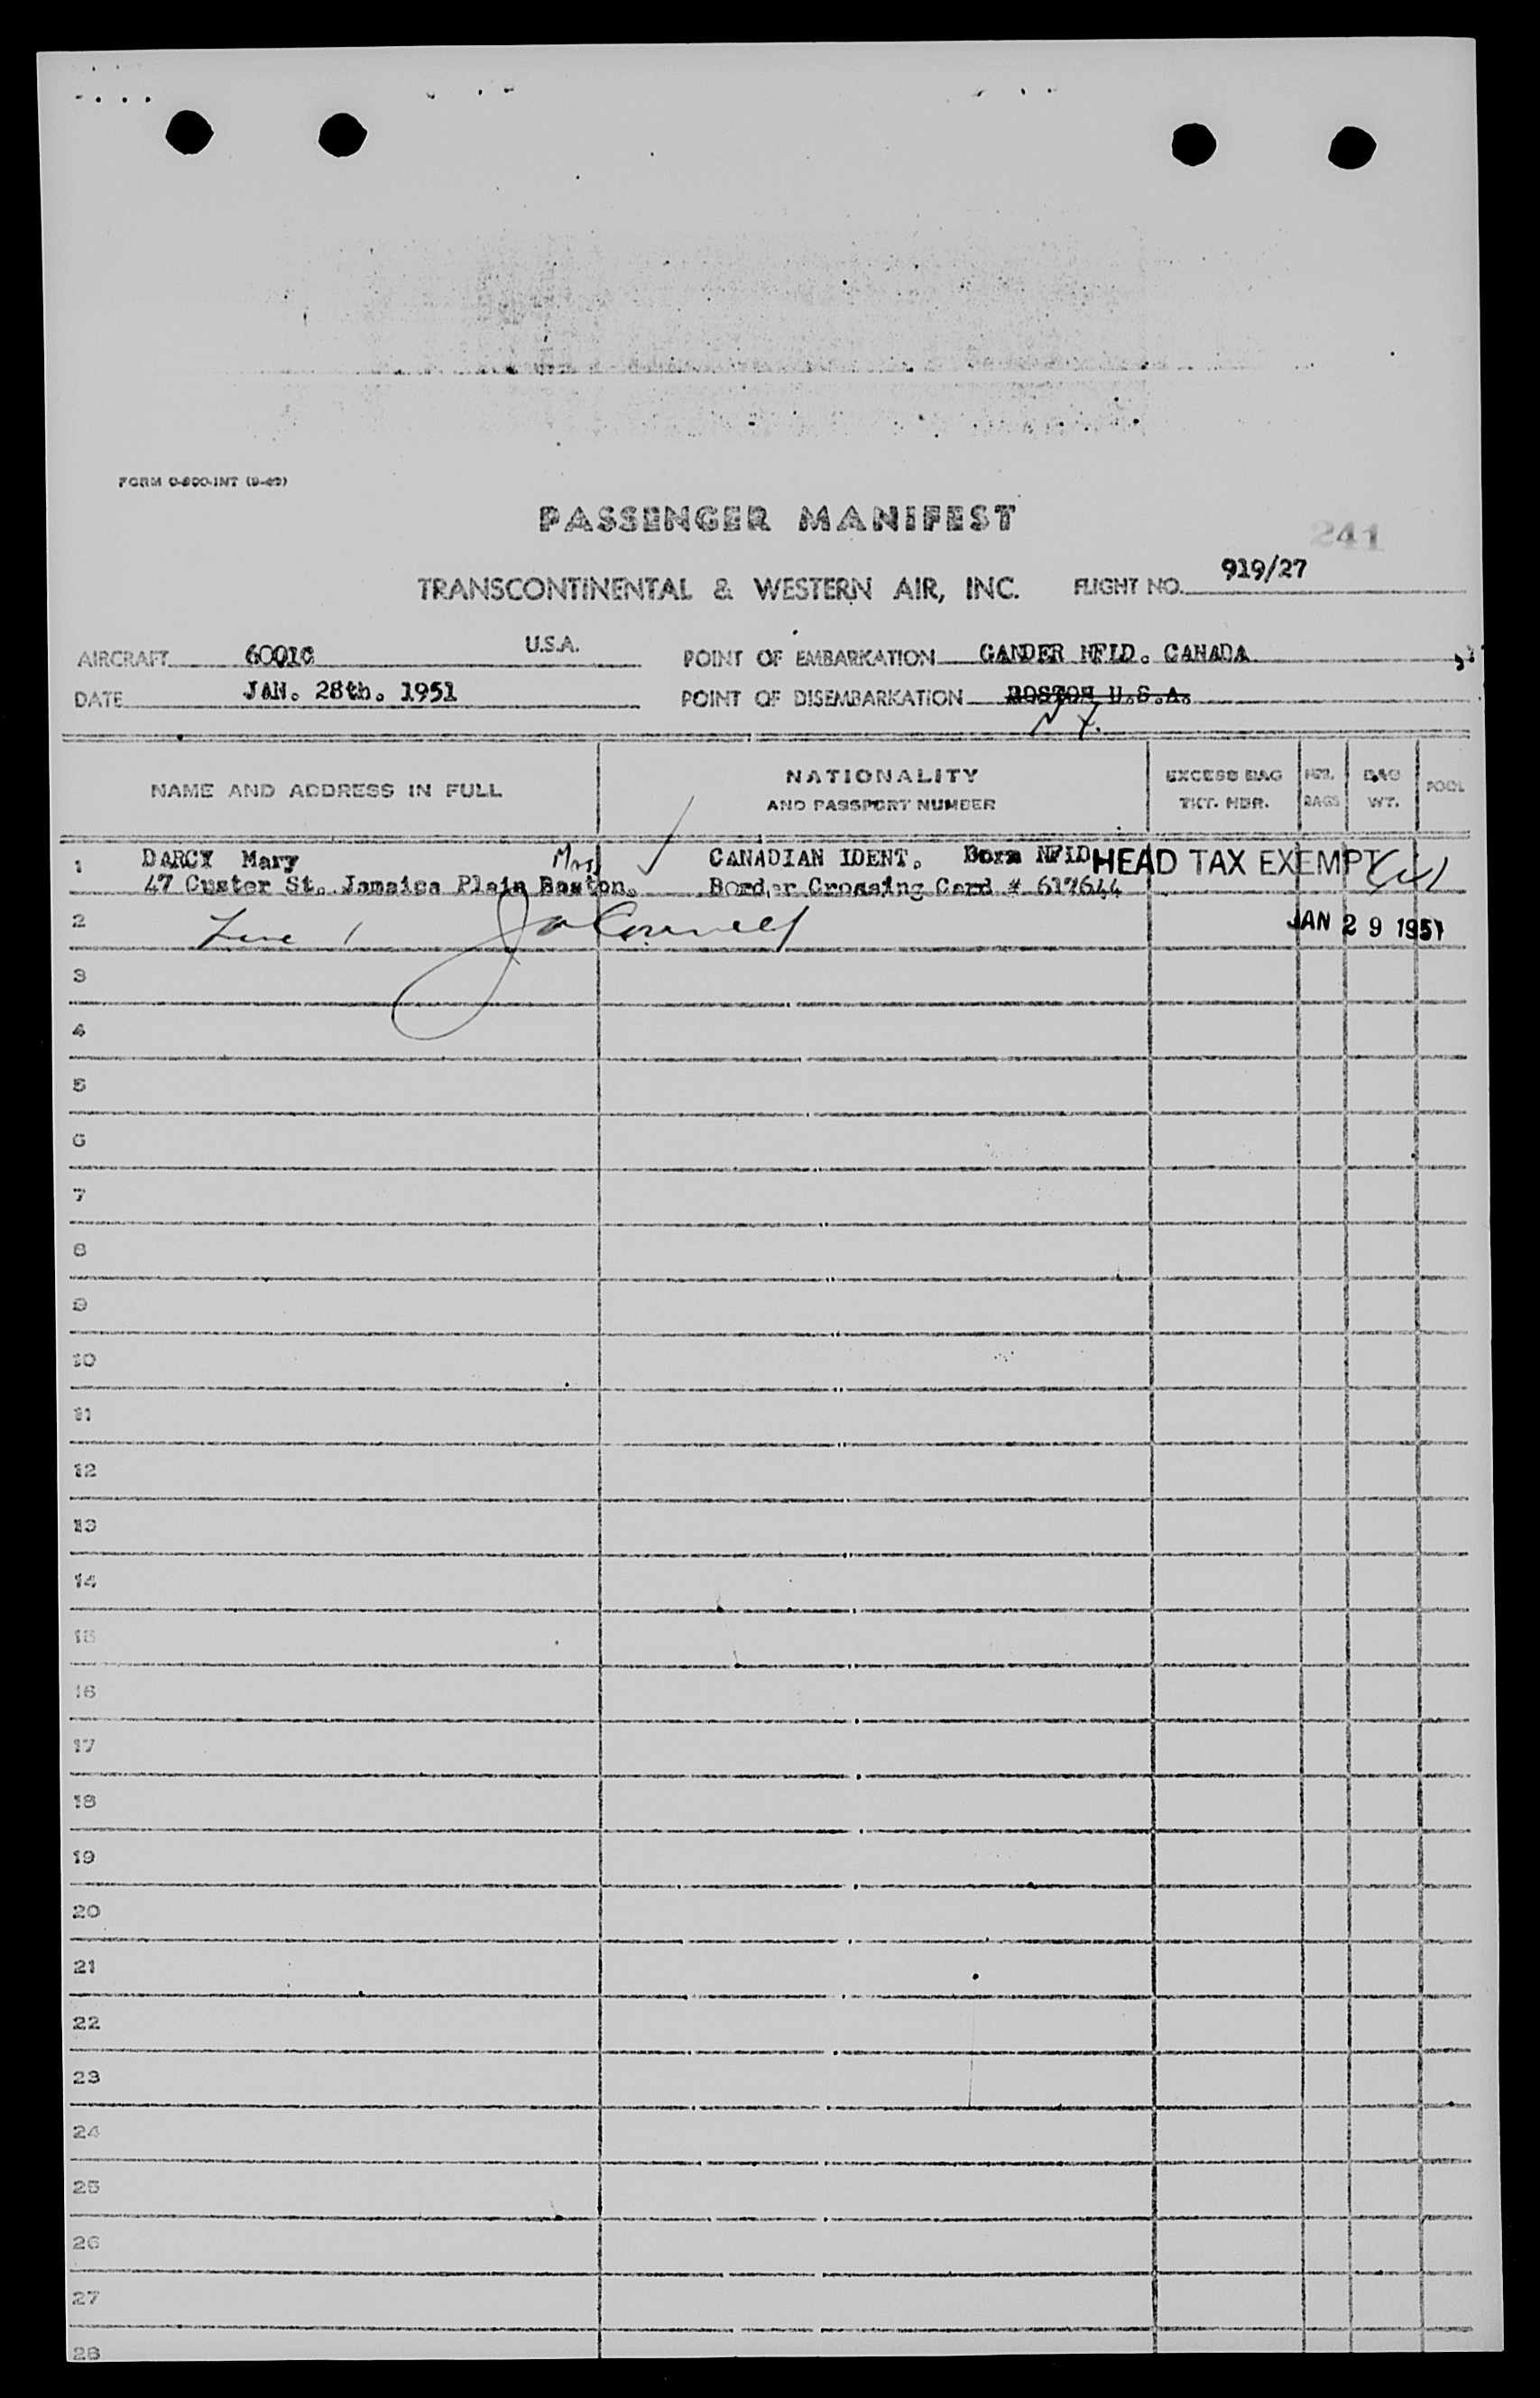 FORM O-800-INT (9-49)
PASSENGER MANIFEST
241
TRANSCONTINENTAL & WESTERN AIR, INC. FLIGHT NO. 919/27
AIRCRAFT 6001C U.S.A. POINT OF EMBARKATION GANDER NFLD. CANADA
DATE JAN. 28th. 1951 POINT OF DISEMBARKATION BOSTON U.S.A.
N.Y.
NAME AND ADDRESS IN FULL NATIONALITY AND PASSPORT NUMBER EXCESS BAG TKT. NBR. NBR. BAGS BAG WT. POOL
1 DARCY Mary Mrs CANADIAN IDENT. Born NFLD HEAD TAX EXEMPT
47 Custer St. Jamaica Plain Boston. Border Crossing Card # 617644
2 Line 1 JAN 29 1951
3
4
5
6
7
8
9
10
11
12
13
14
15
16
17
18
19
20
21
22
23
24
25
26
27
28